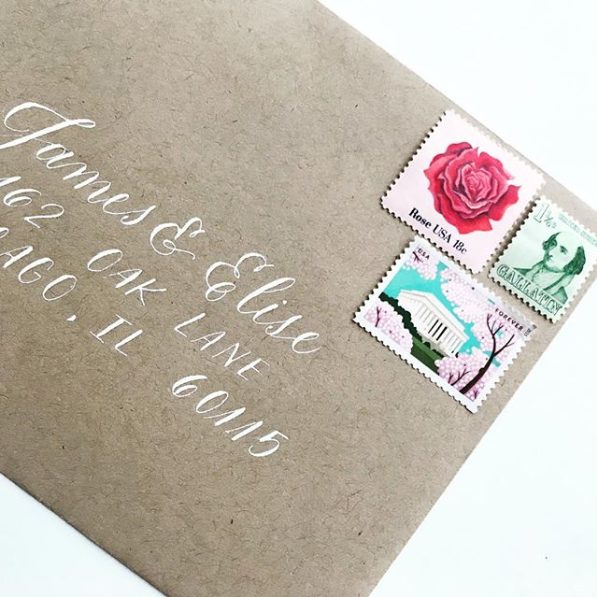 James & Elise
162 OAK LANE
CAGO, IL 60115
Rose USA 18c
1¼¢
GALLATIN
USA
FOREVER